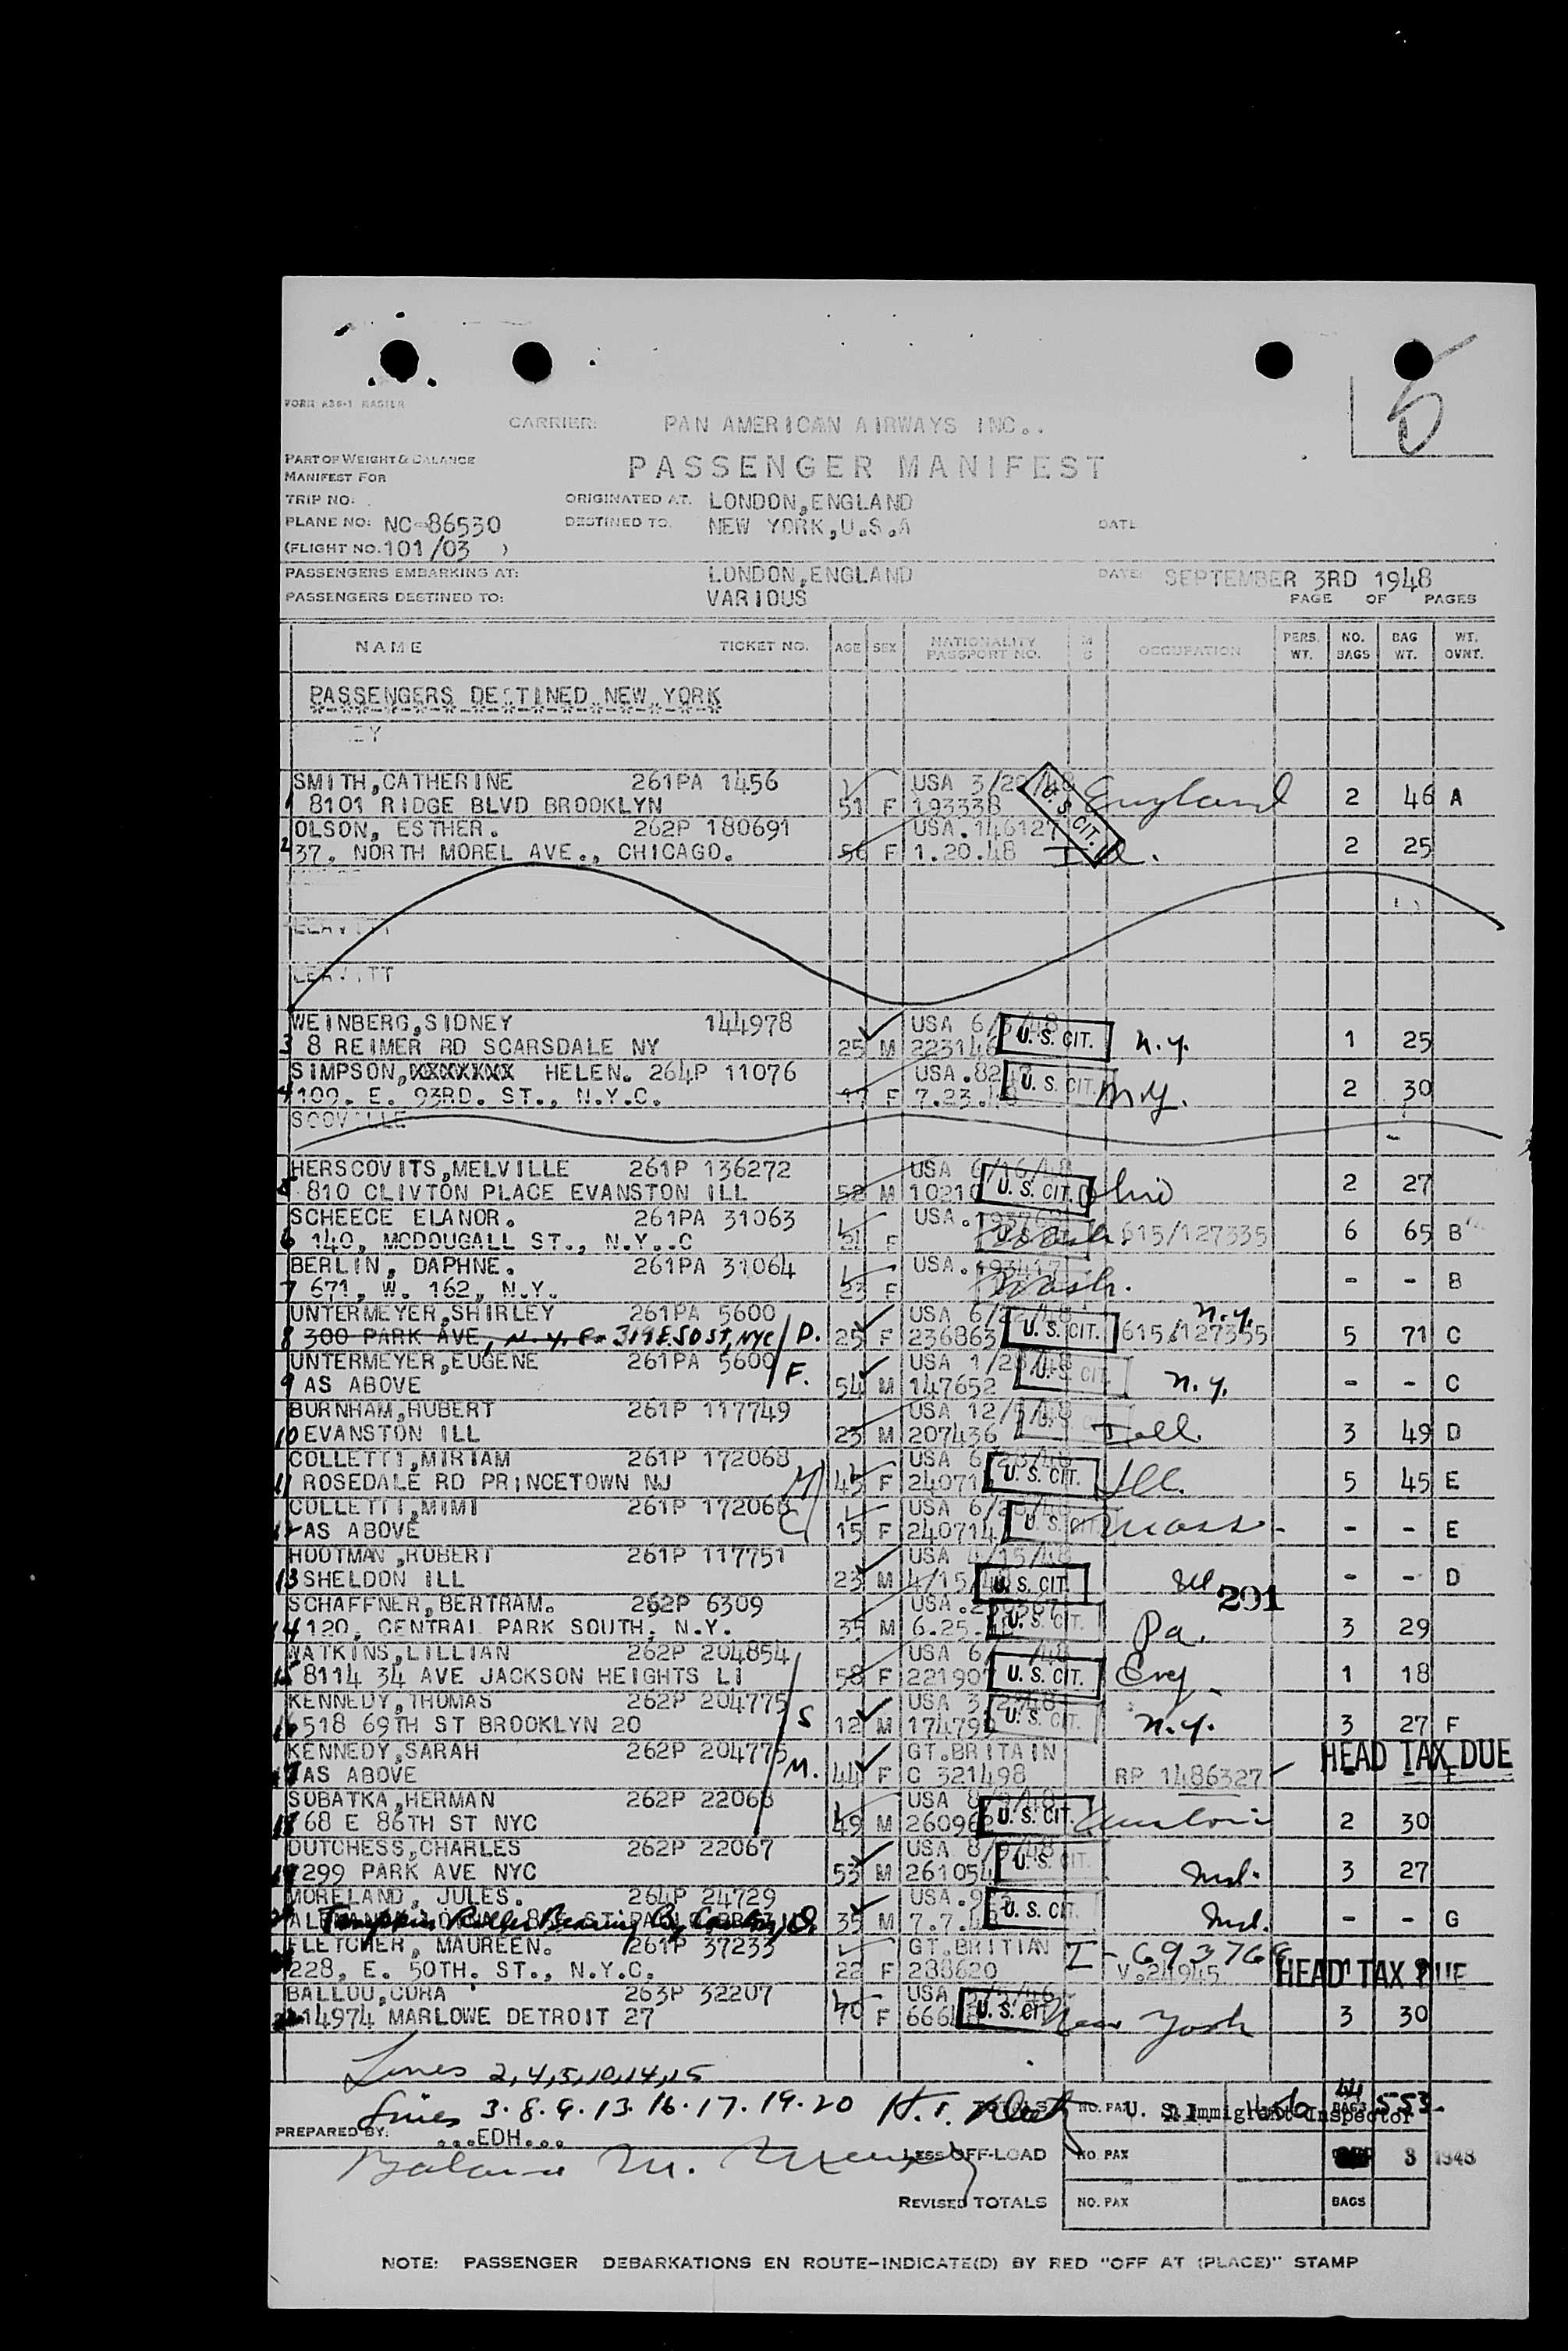 5
FORM A36-1 MASTER
CARRIER: PAN AMERICAN AIRWAYS INC..
PART OF WEIGHT & BALANCE
MANIFEST FOR
PASSENGER MANIFEST
TRIP NO:
ORIGINATED AT. LONDON,ENGLAND
PLANE NO: NC-86530 DESTINED TO. NEW YORK,U.S.A DATE
(FLIGHT NO. 101/03 )
PASSENGERS EMBARKING AT: LONDON,ENGLAND DATE: SEPTEMBER 3RD 1948
PASSENGERS DESTINED TO: VARIOUS PAGE OF PAGES
NAME TICKET NO. AGE SEX NATIONALITY PASSPORT NO. M C OCCUPATION PERS. WT. NO. BAGS BAG WT. WT. OVNT.
PASSENGERS DESTINED NEW YORK
SMITH,CATHERINE 261PA 1456 USA 3/20/48 U. S. CIT. England
1 8101 RIDGE BLVD BROOKLYN 51 F 193338 2 46 A
OLSON, ESTHER. 262P 180691 USA.146127
2 37. NORTH MOREL AVE., CHICAGO. 56 F 1.20.48 Ill. 2 25
LEAVITT
LEAVITT
WEINBERG,SIDNEY 144978 USA 6/ /48 U. S. CIT. N.Y.
3 8 REIMER RD SCARSDALE NY 25 M 223146 1 25
SIMPSON,XXXXXXX HELEN. 264P 11076 USA.82 U. S. CIT. N.Y.
4 109. E. 93RD. ST., N.Y.C. F 7.23.48 2 30
SCOVILLE
HERSCOVITS,MELVILLE 261P 136272 USA 6/16/48 U. S. CIT. Ohio
5 810 CLIVTON PLACE EVANSTON ILL 52 M 10210 2 27
SCHEECE ELANOR. 261PA 31063 USA. Wash. 615/127335
6 140, MCDOUGALL ST., N.Y..C 21 F 6 65 B
BERLIN, DAPHNE. 261PA 31064 USA.193417 Wash.
7 671, W. 162, N.Y. 23 F - - B
UNTERMEYER,SHIRLEY 261PA 5600 USA 6/22/48 U. S. CIT. N.Y.
8 300 PARK AVE, N.Y.C. 319 E.50 ST, NYC D. 25 F 236863 615/127335 5 71 C
UNTERMEYER,EUGENE 261PA 5600 F. USA 1/20/48 U. S. CIT. N.Y.
9 AS ABOVE 54 M 147652 - - C
BURNHAM,HUBERT 261P 117749 USA 12/ /48 U. S. CIT.
10 EVANSTON ILL 23 M 207436 Ill. 3 49 D
COLLETTI,MIRIAM 261P 172068 M USA 6/28/48 U. S. CIT. Ill.
11 ROSEDALE RD PRINCETOWN NJ 45 F 24071 5 45 E
COLLETTI,MIMI 261P 172068 C USA 6/28/48 U. S. CIT. Mass.
12 AS ABOVE 15 F 240714 - - E
HOOTMAN,ROBERT 261P 117751 USA 4/15/48 U. S. CIT. Ill
13 SHELDON ILL 23 M 4/15/ - - D
201
SCHAFFNER,BERTRAM. 262P 6309 USA. U. S. CIT. Pa.
14 120, CENTRAL PARK SOUTH, N.Y. 35 M 6.25. 3 29
WATKINS,LILLIAN 262P 204854 USA 6/ /48 U. S. CIT. Eng
15 8114 34 AVE JACKSON HEIGHTS LI 58 F 221907 1 18
KENNEDY,THOMAS 262P 204775 S USA 3/2/48 U. S. CIT. N.Y.
16 518 69TH ST BROOKLYN 20 12 M 17479 3 27 F
KENNEDY,SARAH 262P 204775 M. GT.BRITAIN HEAD TAX DUE
17 AS ABOVE 44 F C 321498 RP 1486327 - F
SUBATKA,HERMAN 262P 22068 USA 8/9/48 U. S. CIT.
18 68 E 86TH ST NYC 49 M 26096 2 30
DUTCHESS,CHARLES 262P 22067 USA 8/9/48 U. S. CIT. Md.
19 299 PARK AVE NYC 53 M 261054 3 27
MORELAND, JULES. 264P 24729 USA.9 U. S. CIT. Md.
Roller Bearing Co, O. 35 M 7.7.4 - - G
FLETCHER, MAUREEN. 261P 37233 GT.BRITIAN I-693769
228, E. 50TH. ST., N.Y.C. 22 F 288620 V.24945 HEAD TAX DUE
BALLOU,CORA 263P 32207 USA /46 U. S. CIT. New York
22 14974 MARLOWE DETROIT 27 70 F 666 3 30
Lines 2,4,5,10,14,15
Lines 3.8.9.13.16.17.19.20 NO. PAX U. S. Immigrant Inspector 44 BAGS 553
PREPARED BY: ...EDH...
Balance M.
LESS OFF-LOAD NO. PAX SEP 3 1948
REVISED TOTALS NO. PAX BAGS
NOTE: PASSENGER DEBARKATIONS EN ROUTE-INDICATE(D) BY RED "OFF AT (PLACE)" STAMP